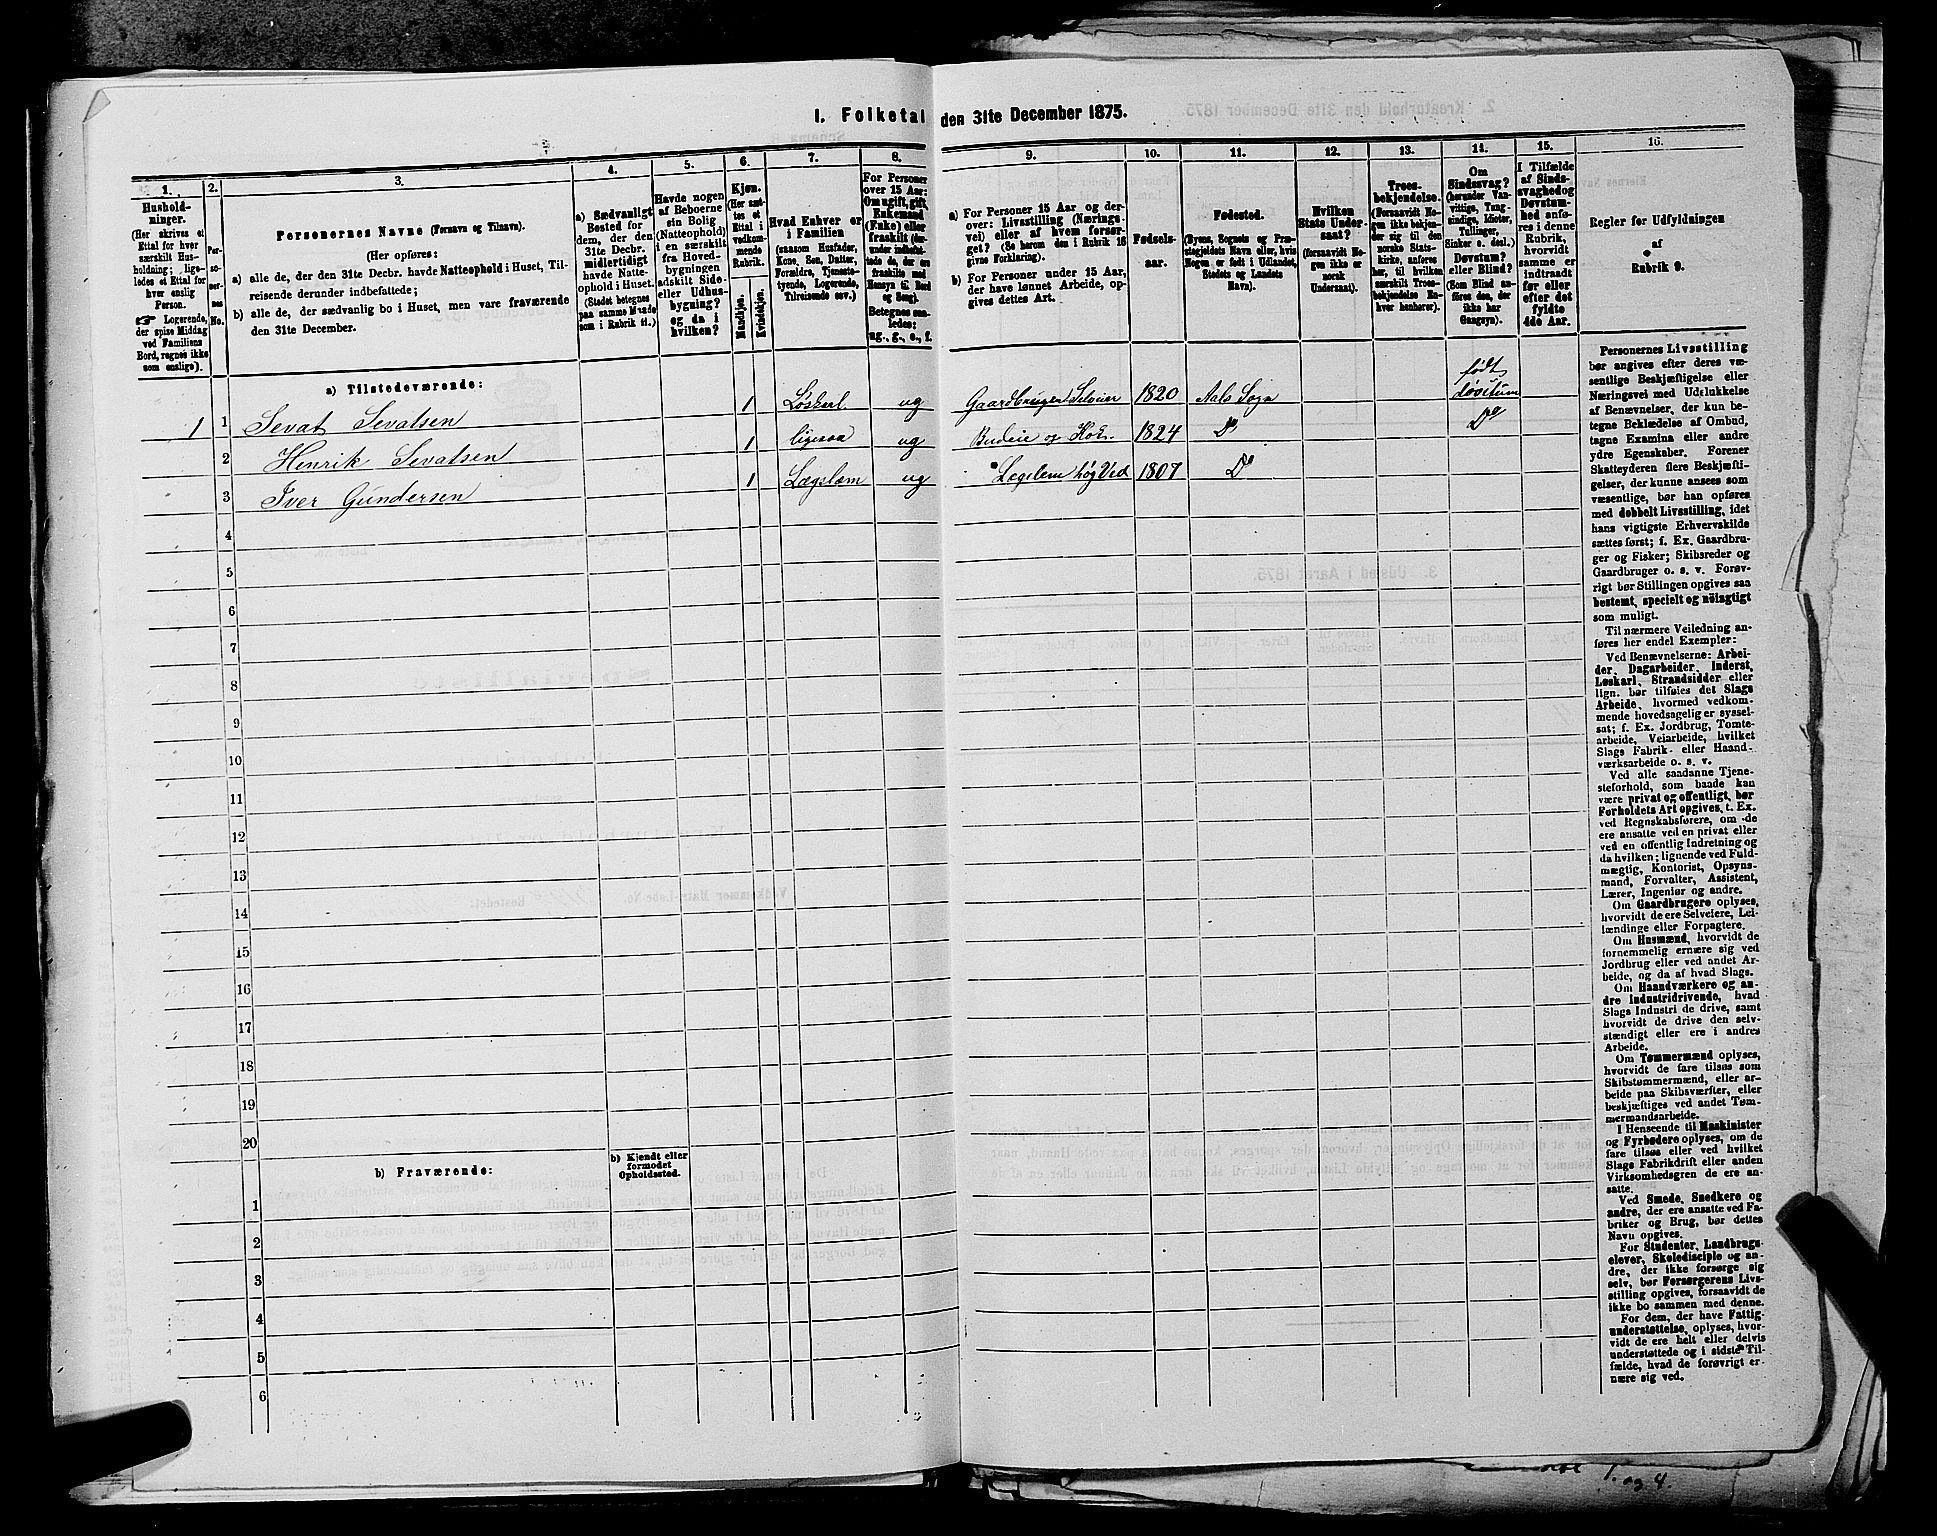 I. Folketal den 31te December 1875.
1.
2.
3.
4.
5.
6.
7.
8.
9.
10.
11.
12.
13.
14.
15.
16.
Hushold-
ninger.
(Her skrives et
Ettal for hver
særskilt Hus-
holdning; lige-
ledes et Ettal for
hver enslig
Person.
☞ Logerende,
der spise Middag
ved Familiens
Bord, regnes ikke
som enslige).
Per-
so-
ner-
nes
No.
Personernes Navne (Fornavn og Tilnavn).
(Her opføres:
a) alle de, der den 31te Decbr. havde Natteophold i Huset, Til-
reisende derunder indbefattede;
b) alle de, der sædvanlig bo i Huset, men vare fraværende
den 31te December.
a) Sædvanligt
Bosted for
dem, der den
31te Decbr.
midlertidigt
havde Natte-
ophold i Huset.
(Stedet betegnes
paa samme Maade
som i Rubrik 11.)
Havde nogen
af Beboerne
sin Bolig
(Natteophold)
i en særskilt
fra Hoved-
bygningen
adskilt Side-
eller Udhus-
bygning?
og da i
hvilken?
Kjøn.
(Her sæt-
tes et
Ettal i
vedkom-
mende
Rubrik.
Mandkjøn.
Kvindekjøn.
Hvad Enhver er
i Familien
(saasom Husfader,
Kone, Søn, Datter,
Forældre, Tjeneste-
tyende, Logerende,
Tilreisende osv.)
For Personer
over 15 Aar:
Om ugift, gift,
Enkemand
(Enke) eller
fraskilt (der-
under indbefat-
tede de, der ere
fraskilte med
Hensyn til Bord
og Seng).
Betegnes saa-
ledes:
ug., g., e., f.
a) For Personer 15 Aar og der-
over: Livsstilling (Nærings-
vei) eller af hvem forsør-
get? (Se herom den i Rubrik 16
givne Forklaring).
b) For Personer under 15 Aar,
der have lønnet Arbeide, op-
gives dettes Art.
Fødsels-
aar.
Fødested.
(Byens, Sognets og Præ-
stegjeldets Navn eller, hvis
Nogen er født i Udlandet,
Stedets og Landets
Navn).
Hvilken
Stats Under-
saat?
(forsaavidt No-
gen ikke er
norsk
Undersaat).
Troes-
bekjendelse.
(Forsaavidt No-
gen ikke bekjen-
der sig til den
norske Stats-
kirke, anføres
her, til hvilken
særskilt Troes-
bekjendelse En-
hver henhører).
Om
Sindssvag?
(herunder Van-
vittige, Tung-
sindige, Idioter,
Tullinger,
Sinker o. desl.)
Døvstum?
eller Blind?
(Som Blind an-
føres den, der
ikke har
Gangsyn).
I Tilfælde
af Sinds-
svaghed og
Døvstum-
hed anfø-
res i denne
Rubrik,
hvorvidt
samme er
indtraadt
før eller
efter det
fyldte
4de Aar.
Regler for Udfyldningen
af
Rubrik 9.
a) Tilstedeværende:
1 1 Sevat Sevatsen 1 Løskarl. ug Gaardbruger Selveier 1820 Aals Sogn født døvstum
2 Henrik Sevatsen 1 ligesaa ug Budeie og Kok. 1824 Do Do
3 Iver Gundersen 1 Lægslæm ug 1807 Do
4
5
6
7
8
9
10
11
12
13
14
15
16
17
18
19
20
b) Fraværende:
b) Kjendt eller
formodet
Opholdssted.
1
2
3
4
5
6
Personernes Livsstilling
bør angives efter deres væ-
sentlige Beskjæftigelse eller
Næringsvei med Udelukkelse
af Benævnelser, der kun be-
tegne Beklædelse af Ombud,
tagne Examina eller andre
ydre Egenskaber. Forener
Skatteyderen flere Beskjæfti-
gelser, der kunne ansees som
væsentlige, bør han opføres
med dobbelt Livsstilling, idet
hans vigtigste Erhvervskilde
sættes først; f. Ex. Gaardbru-
ger og Fisker; Skibsreder og
Gaardbruger o. s. v. Forøv-
rigt bør Stillingen opgives saa
bestemt, specielt og nöiagtigt
som muligt.
Til nærmere Veiledning an-
føres her endel Exempler:
Ved Benævnelserne: Arbei-
der, Dagarbeider, Inderst,
Løskarl, Strandsidder eller
lign. bør tilføies det Slags
Arbeide, hvormed vedkom-
mende hovedsagelig er syssel-
sat; f. Ex. Jordbrug, Tomte-
arbeide, Veiarbeide, hvilket
Slags Fabrik- eller Haand-
værksarbeide o. s. v.
Ved alle saadanne Tjene-
steforhold, som baade kan
være privat og offentligt, bør
Forholdets Art opgives, t. Ex.
ved Regnskabsførere, om de
ere ansatte ved en privat eller
ved en offentlig Indretning og
da hvilken; lignende ved Fuld-
mægtig, Kontorist, Opsyns-
mand, Forvalter, Assistent,
Lærer, Ingeniør og andre.
Om Gaardbrugere oplyses,
hvorvidt de ere Selveiere, Lei-
lændinge eller Forpagtere.
Om Husmænd, hvorvidt de
fornemmelig ernære sig ved
Jordbrug eller ved andet Ar-
beide, og da af hvad Slags.
Om Haandværkere og an-
dre Industridrivende, hvad
Slags Industri de drive, samt
hvorvidt de drive den selv-
stændigt eller ere i andres
Arbeide.
Om Tømmermænd oplyses,
hvorvidt de fare tilsøs som
Skibstømmermænd, eller ar-
beide paa Skibsværfter, eller
beskjæftiges ved andet Tøm-
mermandsarbeide.
I Henseende til Maskinister
og Fyrbødere oplyses, om de
fare tilsøs eller ved hvilket
Slags Fabrikdrift eller anden
Virksomhedsgren de ere an-
satte.
Ved Smede, Snedkere og
andre, der ere ansatte ved Fa-
briker og Brug, bør dettes
Navn opgives.
For Studenter, Landbrugs-
elever, Skoledisciple og an-
dre, der ikke forsørge sig
selv, bør Forsørgerens Livs-
stilling opgives, forsaavidt de
ikke bo sammen med denne.
For dem, der have Fattig-
understøttelse, oplyses, hvor-
vidt de ere helt eller delvis
understøttede og i sidste Til-
fælde, hvad de forøvrigt er-
nære sig ved.
1. og 4.